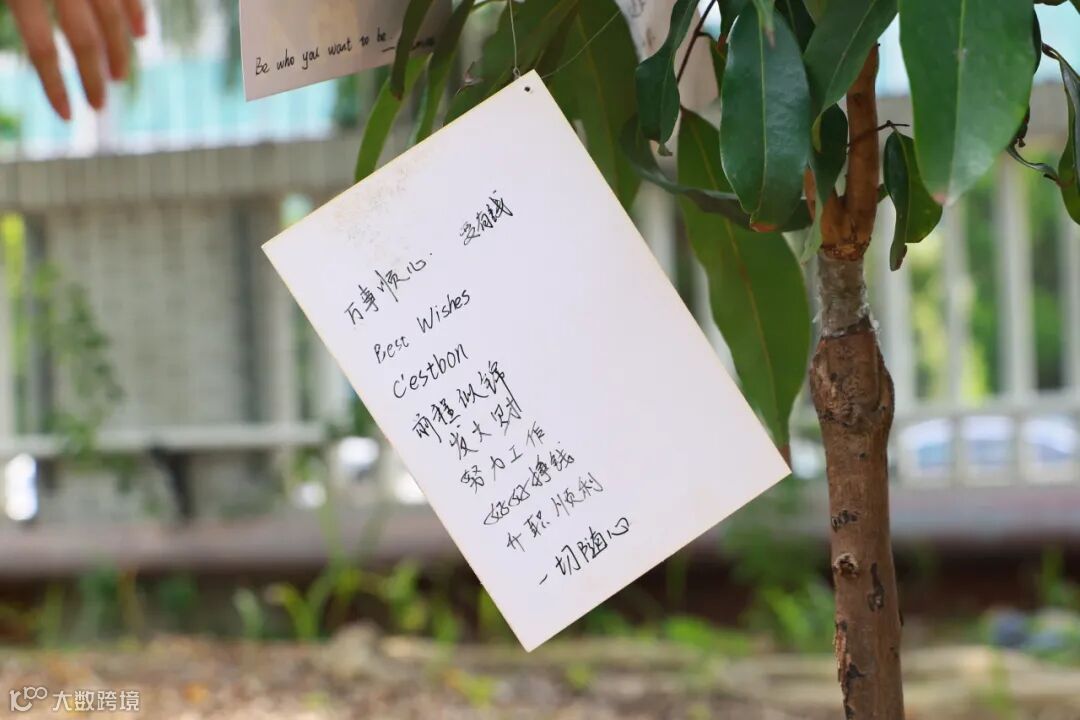 Be who you want to be
要有钱
万事顺心.
Best Wishes
C'estbon
前程似锦
发大财
努力工作
好好挣钱
升职顺利
一切随心
大数跨境